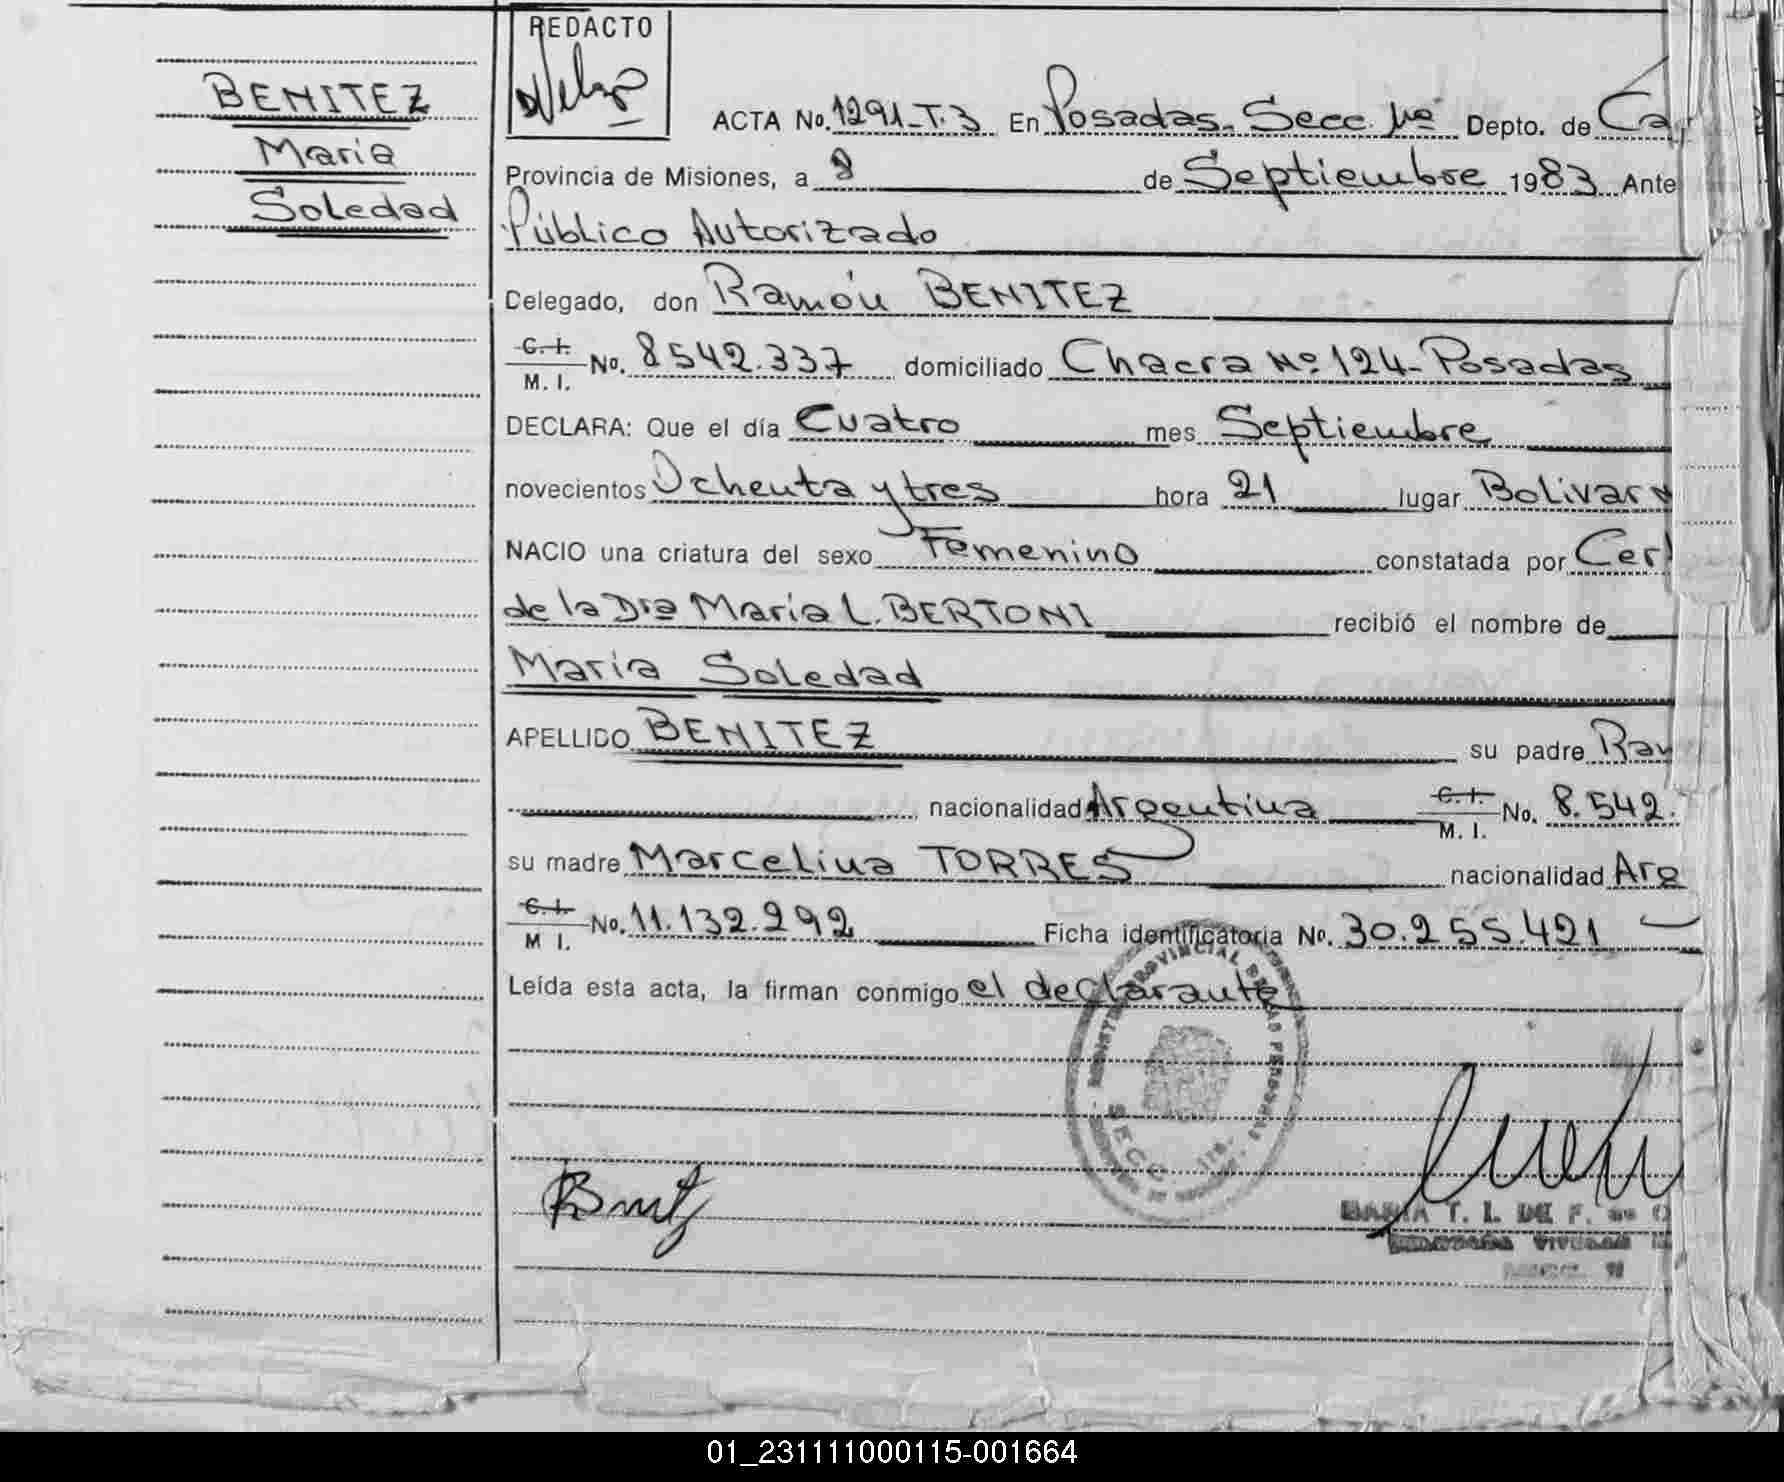 BENITEZ
Maria
Soledad
REDACTO
ACTA No. 1291-T.3 En Posadas, Secc. Depto. de Ca
Provincia de Misiones, a 8 de Septiembre 1983 Ante
Público Autorizado
Delegado, don Ramón BENITEZ
C. I. M. I. No. 8542.337 domiciliado Chacra Nº 124-Posadas
DECLARA: Que el día Cuatro mes Septiembre
novecientos Ochenta y tres hora 21 lugar Bolivar
NACIO una criatura del sexo Femenino constatada por Cer
de la Dra Maria L. BERTONI recibió el nombre de
Maria Soledad
APELLIDO BENITEZ su padre Ra
nacionalidad Argentina C. I. M. I. No. 8.542.
su madre Marcelina TORRES nacionalidad Arg
C. I. M I. No. 11.132.292 Ficha identificatoria No. 30.255.421
Leída esta acta, la firman conmigo el declarante
PROVINCIAL DE LAS PERSONAS
SECC. 1ra.
MARIA T. I. DE F.
01_231111000115-001664